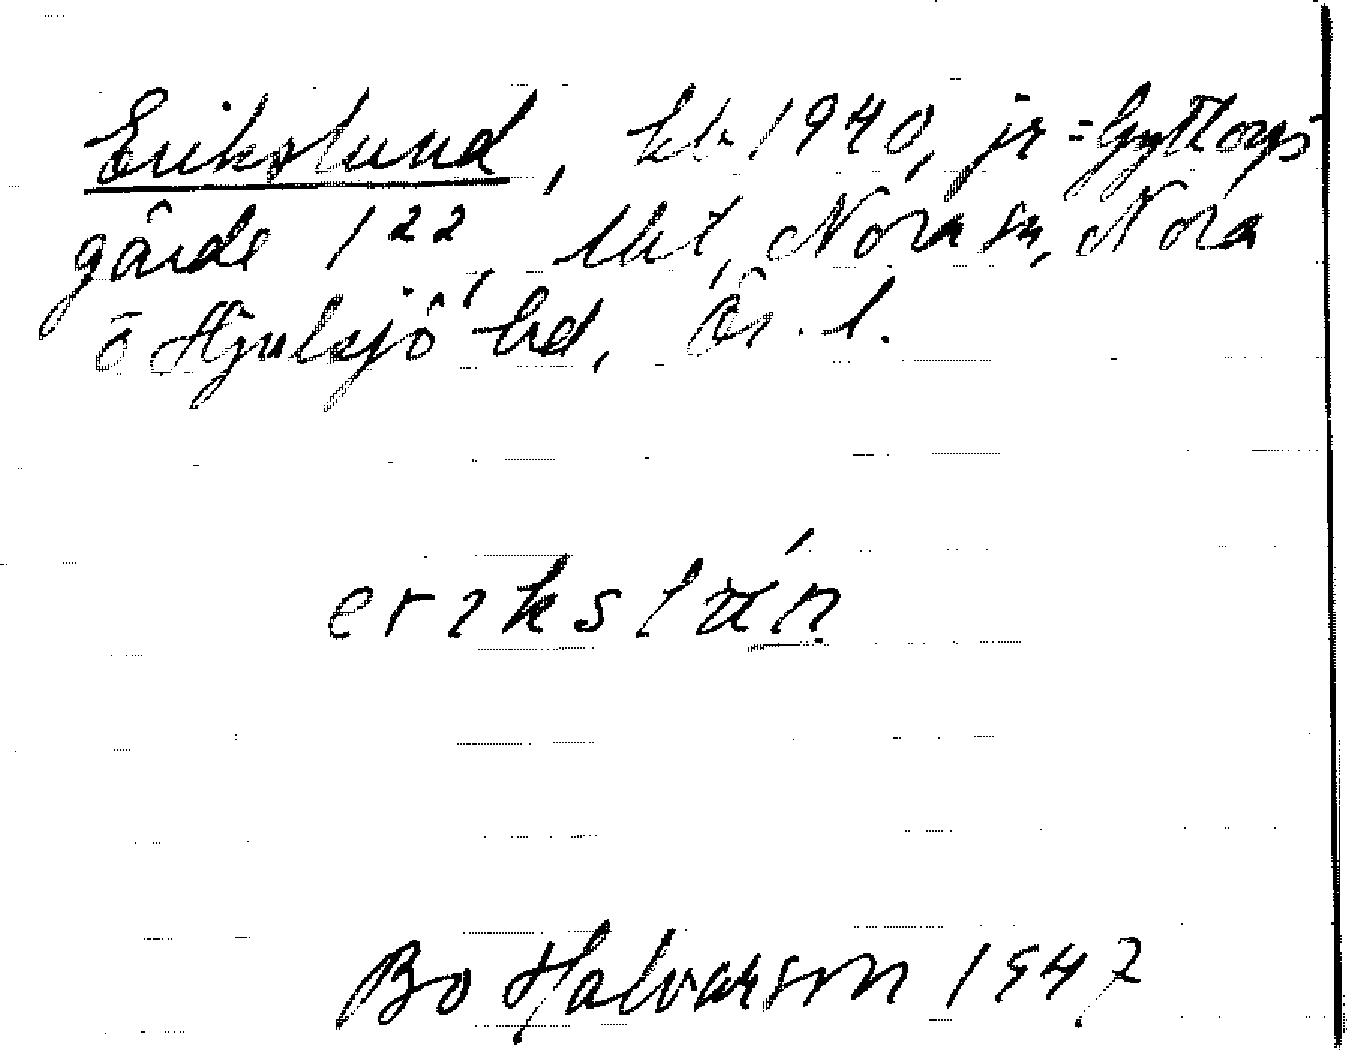 Erikslund, kb. 1940, jr = Gyttorps
gärde 1²², lht, Nora sn, Nora
o Hjulsjö bd, Ör. l.
erikslún
Bo Halvarson 1947